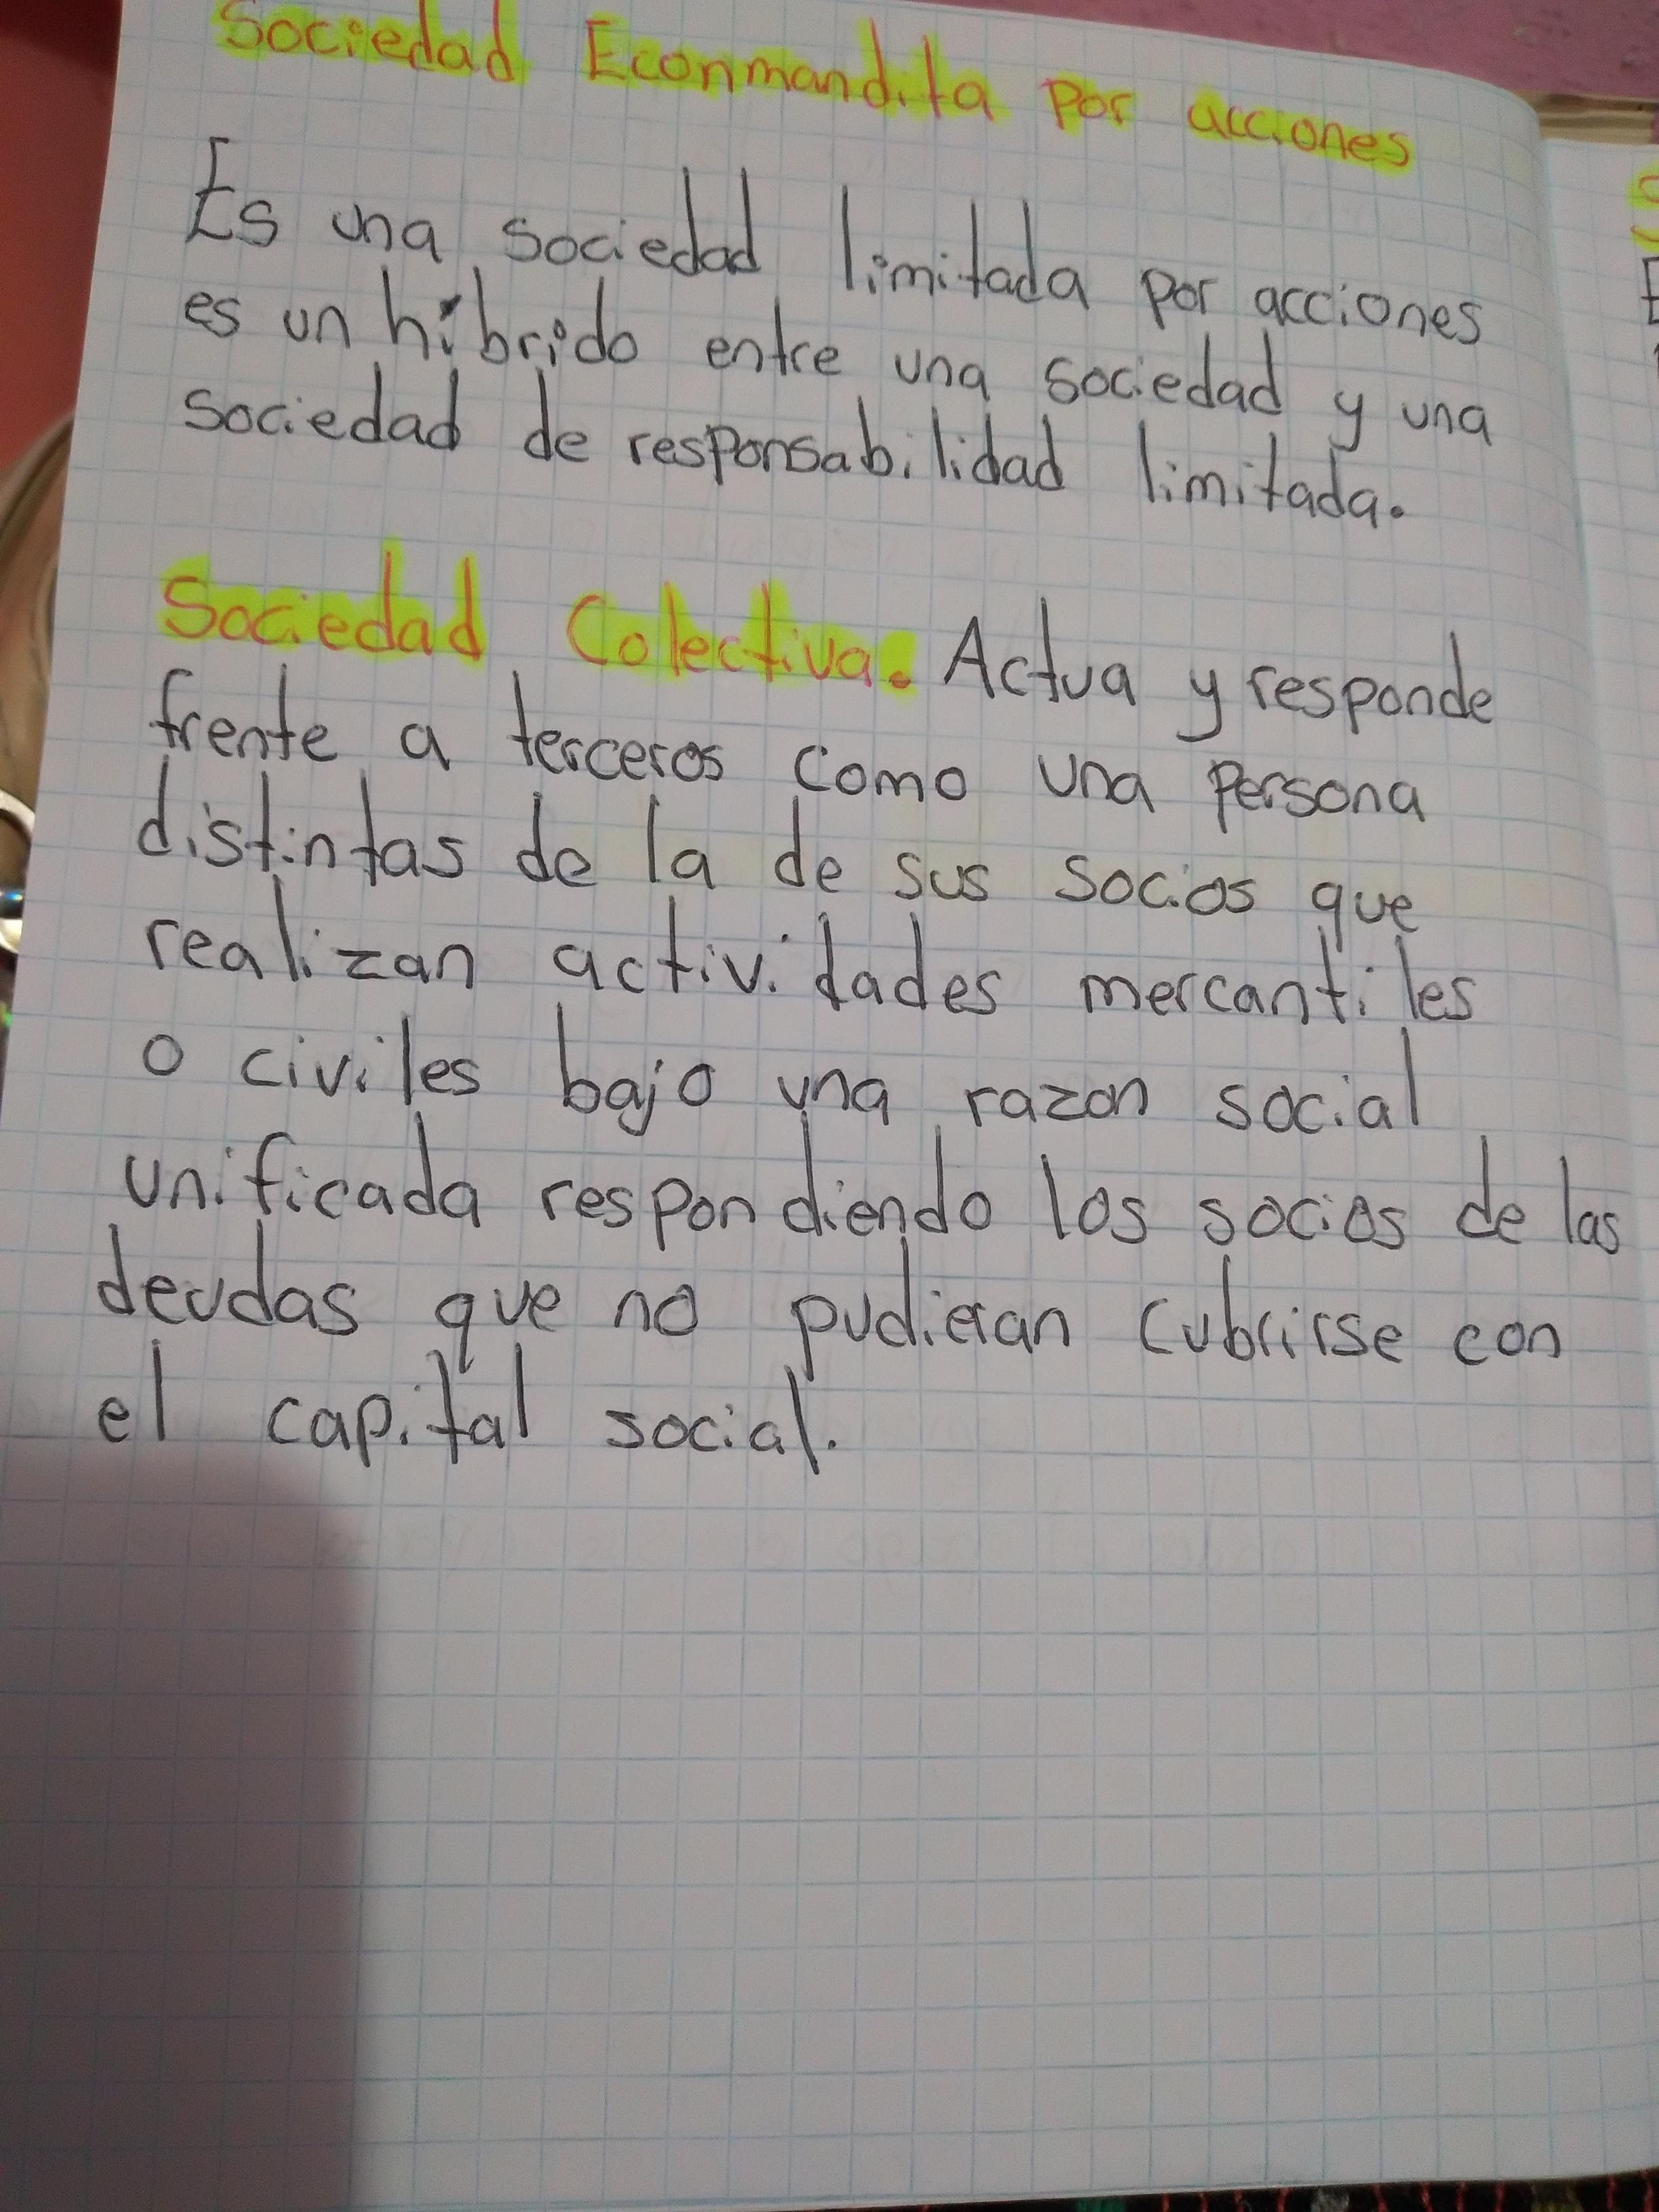 Sociedad Econmandita por acciones
Es una sociedad limitada por acciones
es un híbrido entre una sociedad y una
sociedad de responsabilidad limitada.
Sociedad Colectiva. Actua y responde
frente a terceros como una persona
distintas de la de sus socios que
realizan actividades mercantiles
o civiles bajo una razon social
unificada respondiendo los socios de las
deudas que no pudieran cubrirse con
el capital social.